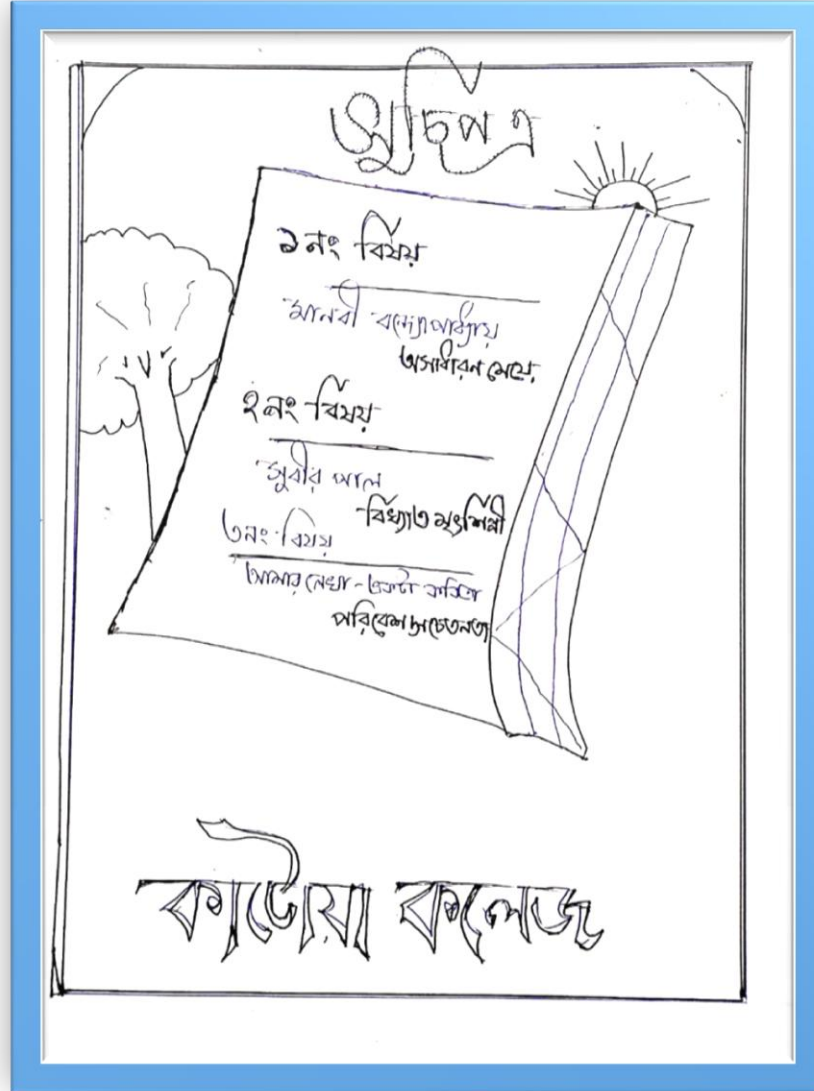 সুচিপত্র
১নং বিষয়
মানবী বন্দ্যোপাধ্যায়
অসাধারন মেয়ে
২নং বিষয়
সুবীর পাল
বিখ্যাত মৃৎশিল্পী
৩নং বিষয়
আমার লেখা - একটা কবিতা
পরিবেশ সচেতনতা
কাটোয়া কলেজ